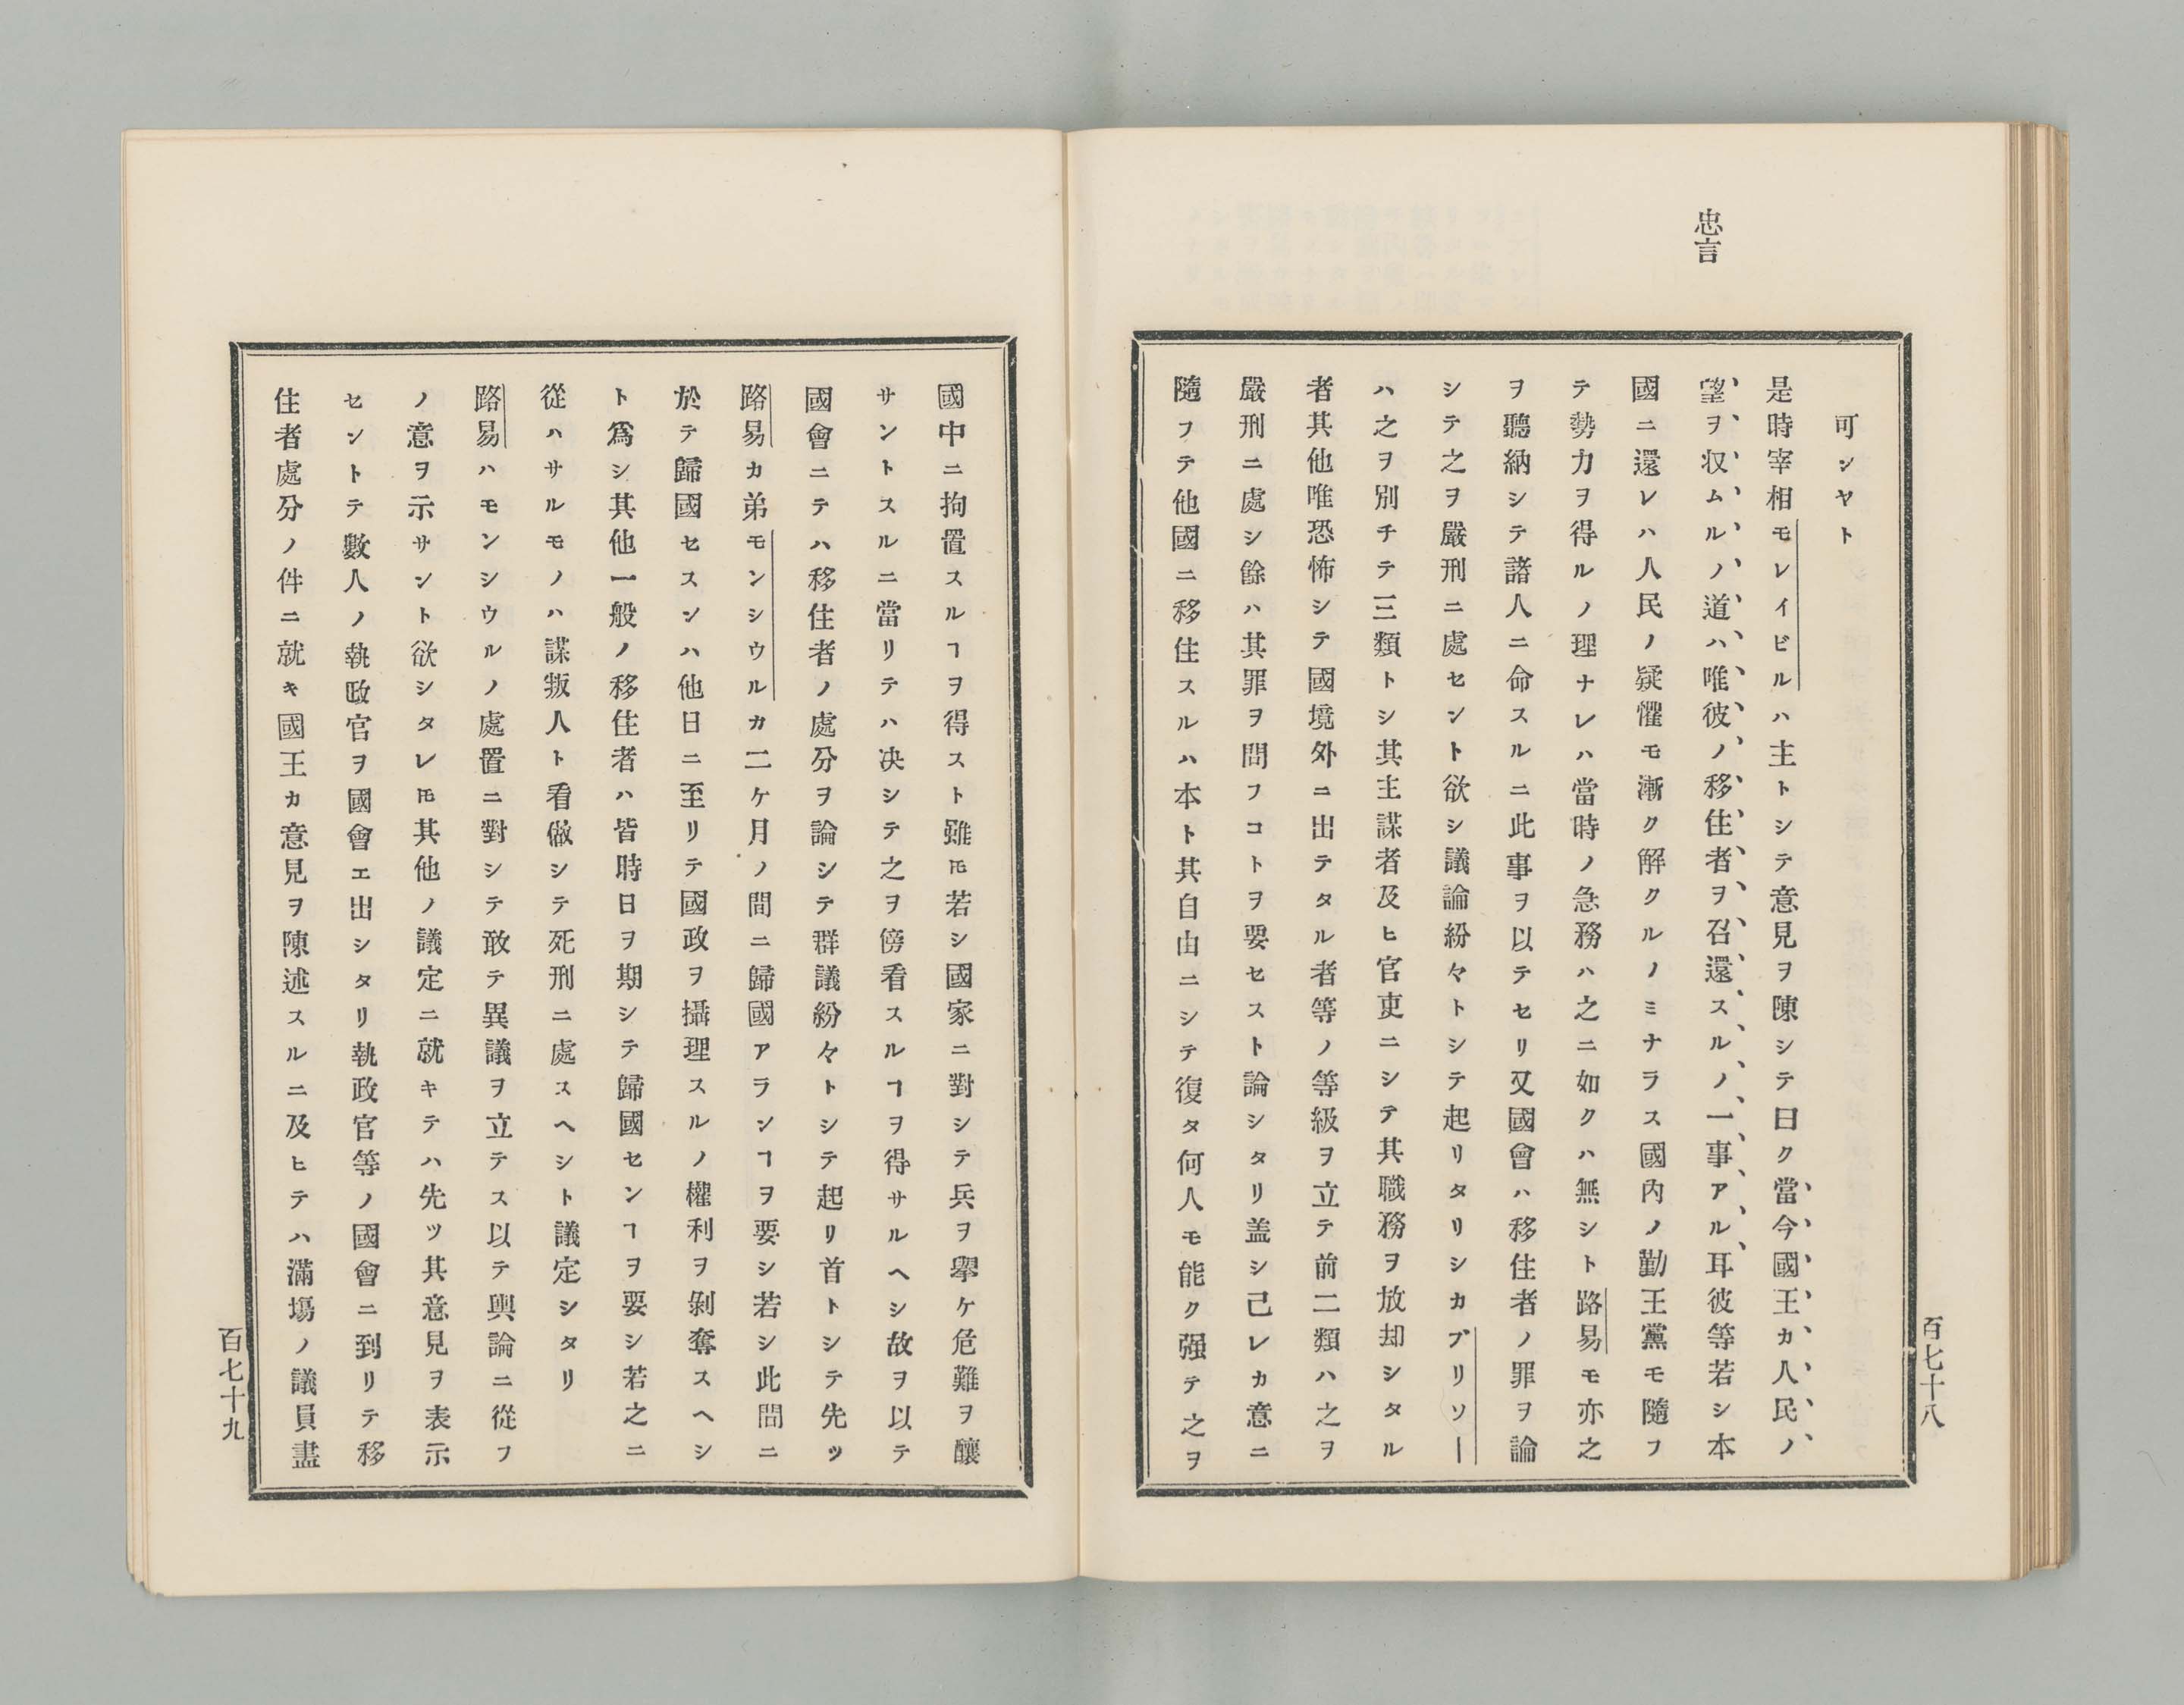 忠言
可ンヤト
是時宰相モレイビルハ主トシテ意見ヲ陳シテ曰ク當今國王カ人民ノ
望ヲ収ムルノ道ハ唯彼ノ移住者ヲ召還スルノ一事アル耳彼等若シ本
國ニ還レハ人民ノ疑懼モ漸ク解クルノミナラス國内ノ勤王黨モ隨フ
テ勢力ヲ得ルノ理ナレハ當時ノ急務ハ之ニ如クハ無シト路易モ亦之
ヲ聽納シテ諸人ニ命スルニ此事ヲ以テセリ又國會ハ移住者ノ罪ヲ論
シテ之ヲ嚴刑ニ處セント欲シ議論紛々トシテ起リタリシカブリソー
ハ之ヲ別チテ三類トシ其主謀者及ヒ官吏ニシテ其職務ヲ放却シタル
者其他唯恐怖シテ國境外ニ出テタル者等ノ等級ヲ立テ前二類ハ之ヲ
嚴刑ニ處シ餘ハ其罪ヲ問フコトヲ要セスト論シタリ盖シ己レカ意ニ
隨フテ他國ニ移住スルハ本ト其自由ニシテ復タ何人モ能ク强テ之ヲ
百七十八
國中ニ拘置スルヿヲ得スト雖𪜈若シ國家ニ對シテ兵ヲ擧ケ危難ヲ釀
サントスルニ當リテハ决シテ之ヲ傍看スルヿヲ得サルヘシ故ヲ以テ
國會ニテハ移住者ノ處分ヲ論シテ群議紛々トシテ起リ首トシテ先ッ
路易カ弟モンシウルカ二ケ月ノ間ニ歸國アランヿヲ要シ若シ此間ニ
於テ歸國セスンハ他日ニ至リテ國政ヲ攝理スルノ權利ヲ剝奪スヘシ
ト爲シ其他一般ノ移住者ハ皆時日ヲ期シテ歸國センヿヲ要シ若之ニ
從ハサルモノハ謀叛人ト看做シテ死刑ニ處スヘシト議定シタリ
路易ハモンシウルノ處置ニ對シテ敢テ異議ヲ立テス以テ輿論ニ從フ
ノ意ヲ示サント欲シタレ𪜈其他ノ議定ニ就キテハ先ツ其意見ヲ表示
セントテ數人ノ執政官ヲ國會エ出シタリ執政官等ノ國會ニ到リテ移
住者處分ノ件ニ就キ國王カ意見ヲ陳述スルニ及ヒテハ滿塲ノ議員盡
百七十九